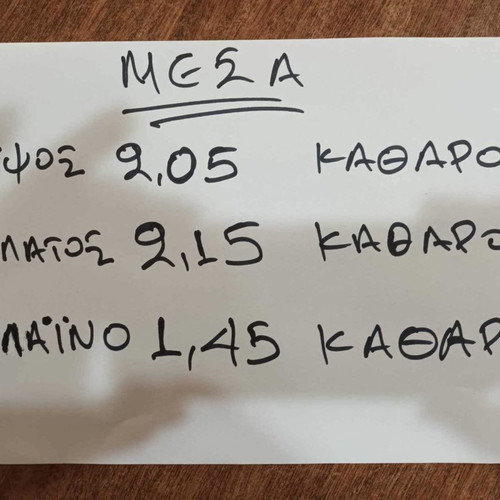 ΜΕΣΑ
ΥΨΟΣ 2,05 ΚΑΘΑΡΟ
ΛΑΤΟΣ 2,15 ΚΑΘΑΡΟ
ΛΑΪΝΟ 1,45 ΚΑΘΑΡ